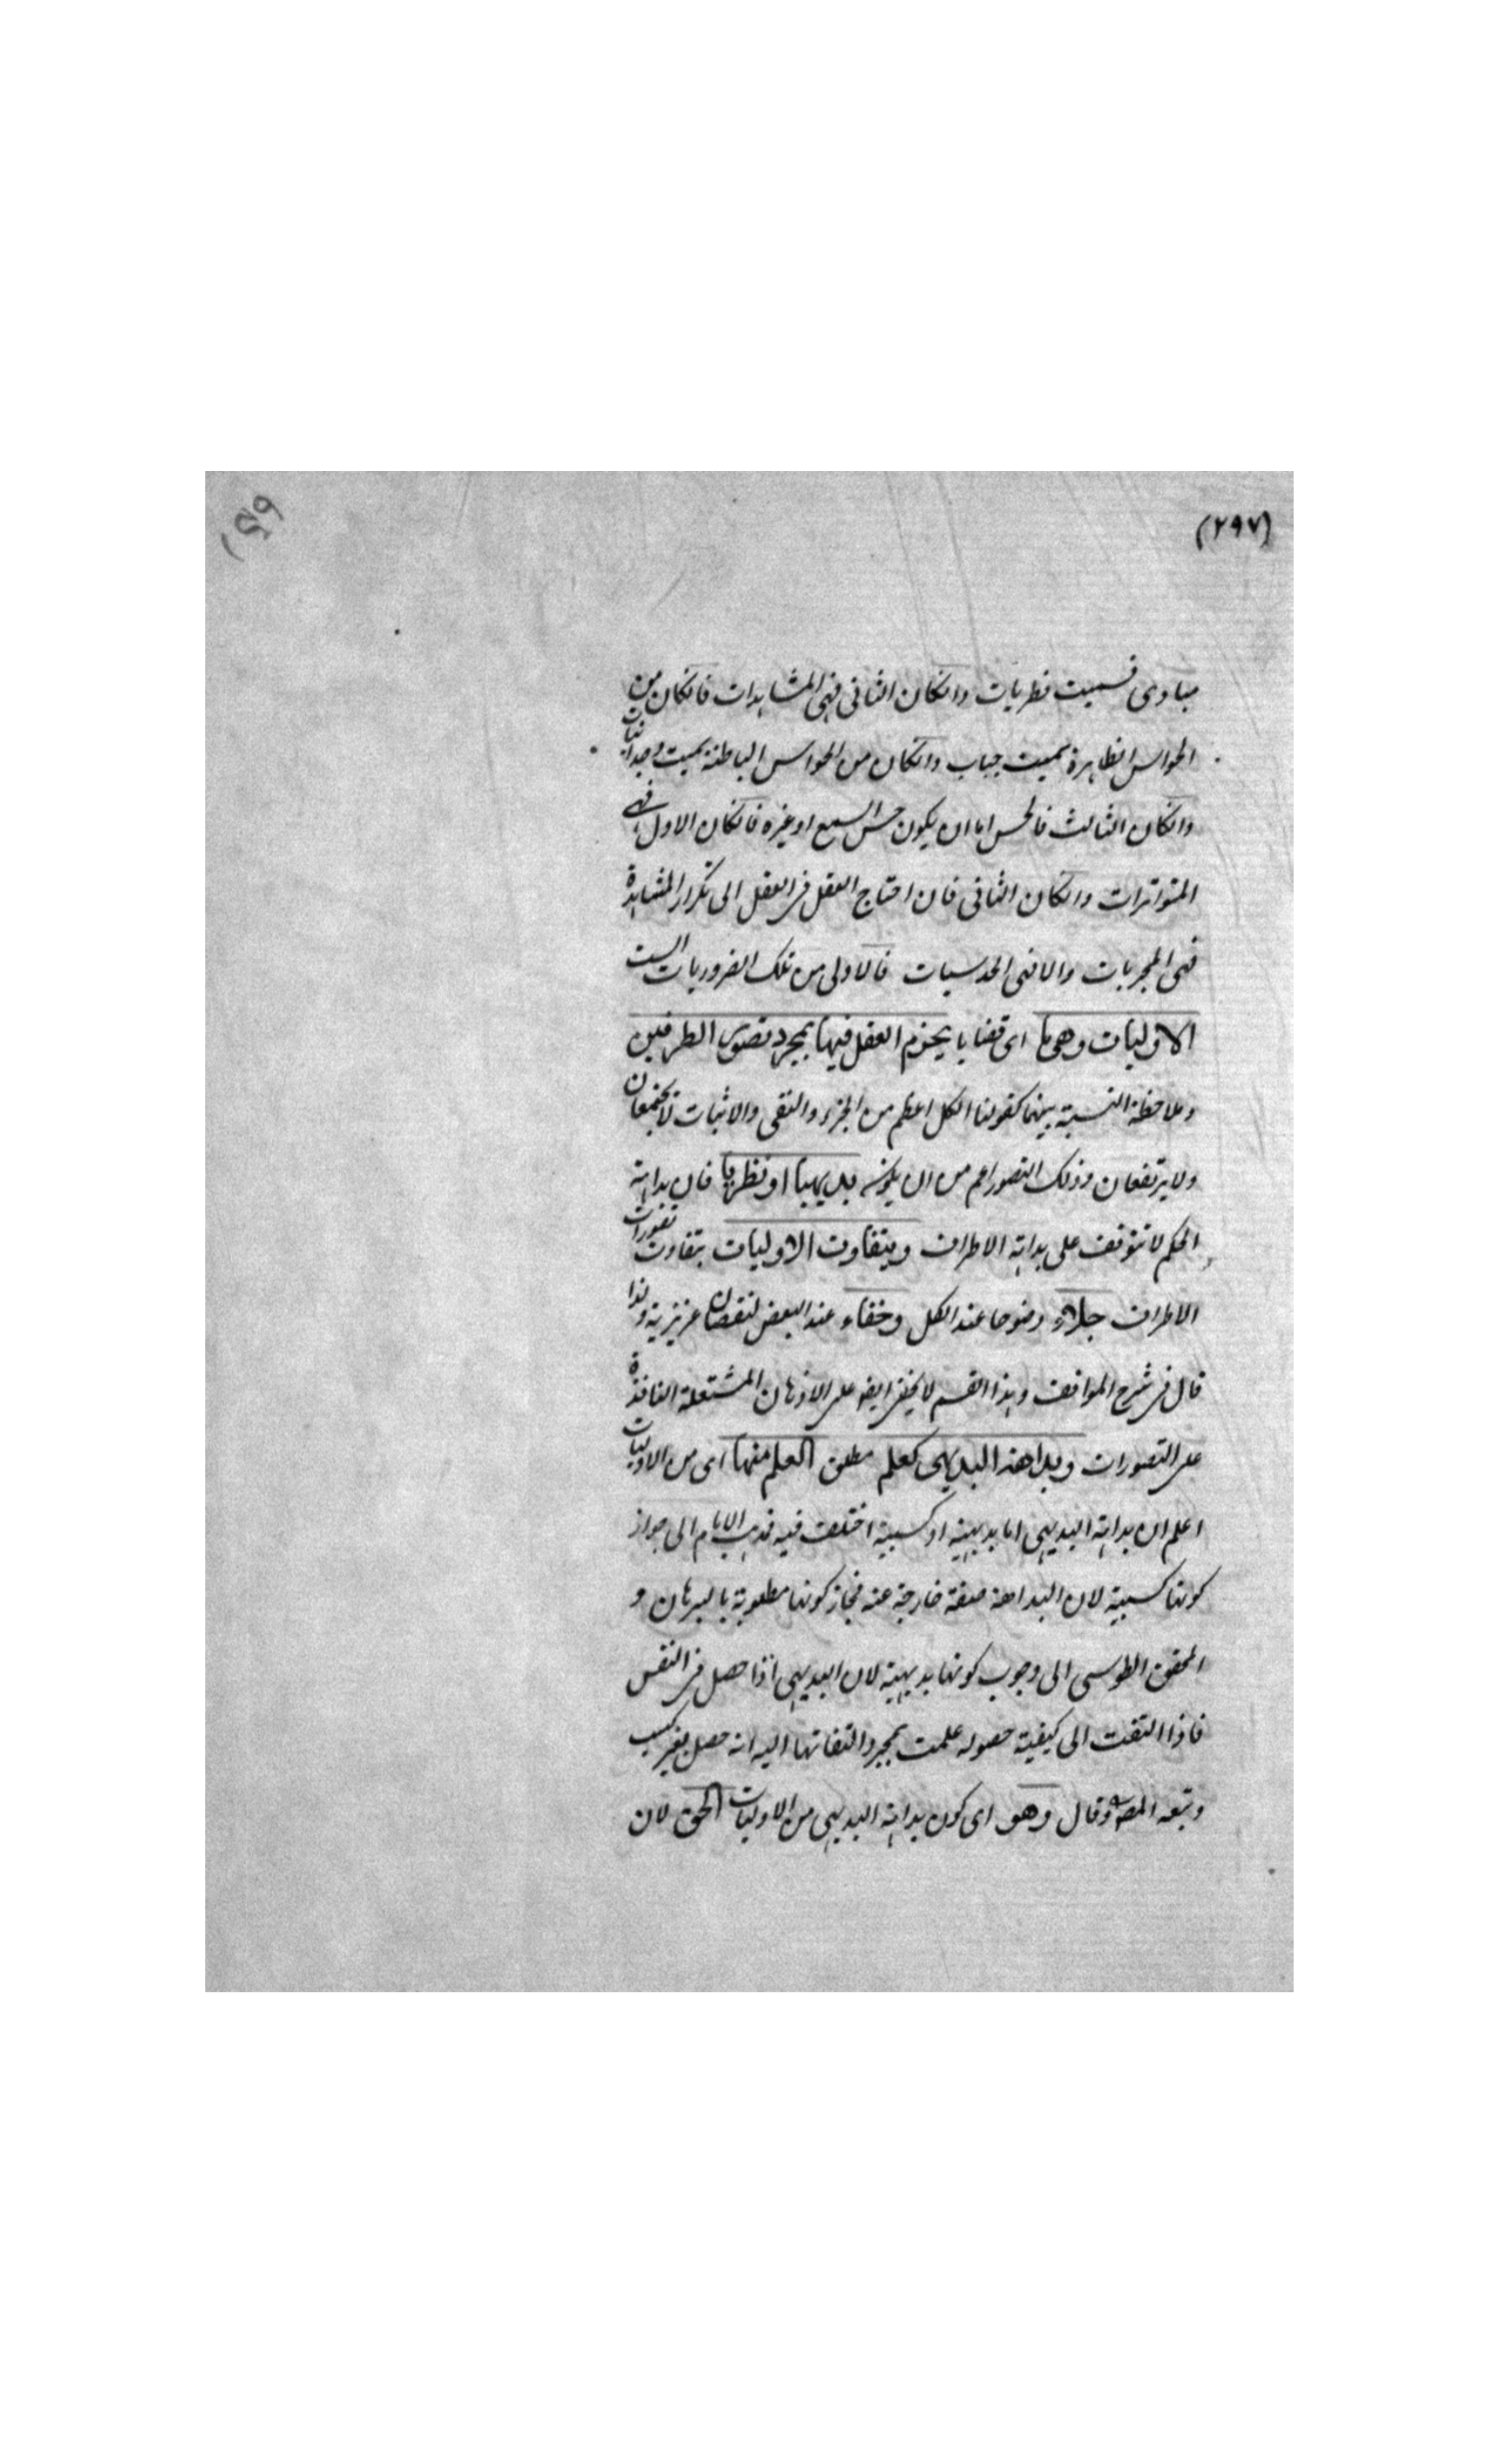 (٢٩٧)
مبادى فسميت فطريات وانكان الثانى فهى المشاهدات فانكان من
الحواس الظاهرة سميت حسيات وانكان من الحواس الباطنة سميت وجدانيات
وانكان الثالث فالحس اما ان يكون حس السمع او غيره فانكان الاول فهى
المتواترات وانكان الثانى فان احتاج العقل فى العقل الى تكرار المشاهدة
فهى المجربات والا فهى الحدسيات فالاولى من تلك الضروريات الست
الاوليات وهى ما اى قضايا يجزم العقل فيها بمجرد تصور الطرفين
وملاحظة النسبة بينهما كقولنا الكل اعظم من الجزء والنفى والاثبات لا يجتمعان
ولا يرتفعان وذلك التصور اعم من ان يكون بديهيا او نظريا فان بداهة
الحكم لا تتوقف على بداهة الاطراف ويتفاوت الاوليات بتفاوت تصورات
الاطراف جلاء وضوحا عند الكل وخفاء عند البعض لنقصان غريزية ولذا
قال فى شرح المواقف وهذا القسم لا يخفى ايضا على الاذهان المشتعلة النافذة
على التصورات وبداهة البديهى كعلم مطلق العلم منها اى من الاوليات
اعلم ان بداهة البديهى اما بديهية او كسبية اختلف فيه فذهب الامام الى جواز
كونها كسبية لان البداهة صفة خارجة عنه فجاز كونها مطلوبة بالبرهان و
المحقق الطوسى الى وجوب كونها بديهية لان البديهى اذا حصل فى النفس
فاذا التفت الى كيفية حصوله علمت بمجرد التفاتها اليه انه حصل بغير كسب
وتبعه المصنف وقال وهو اى كون بداهة البديهى من الاوليات الحق لان